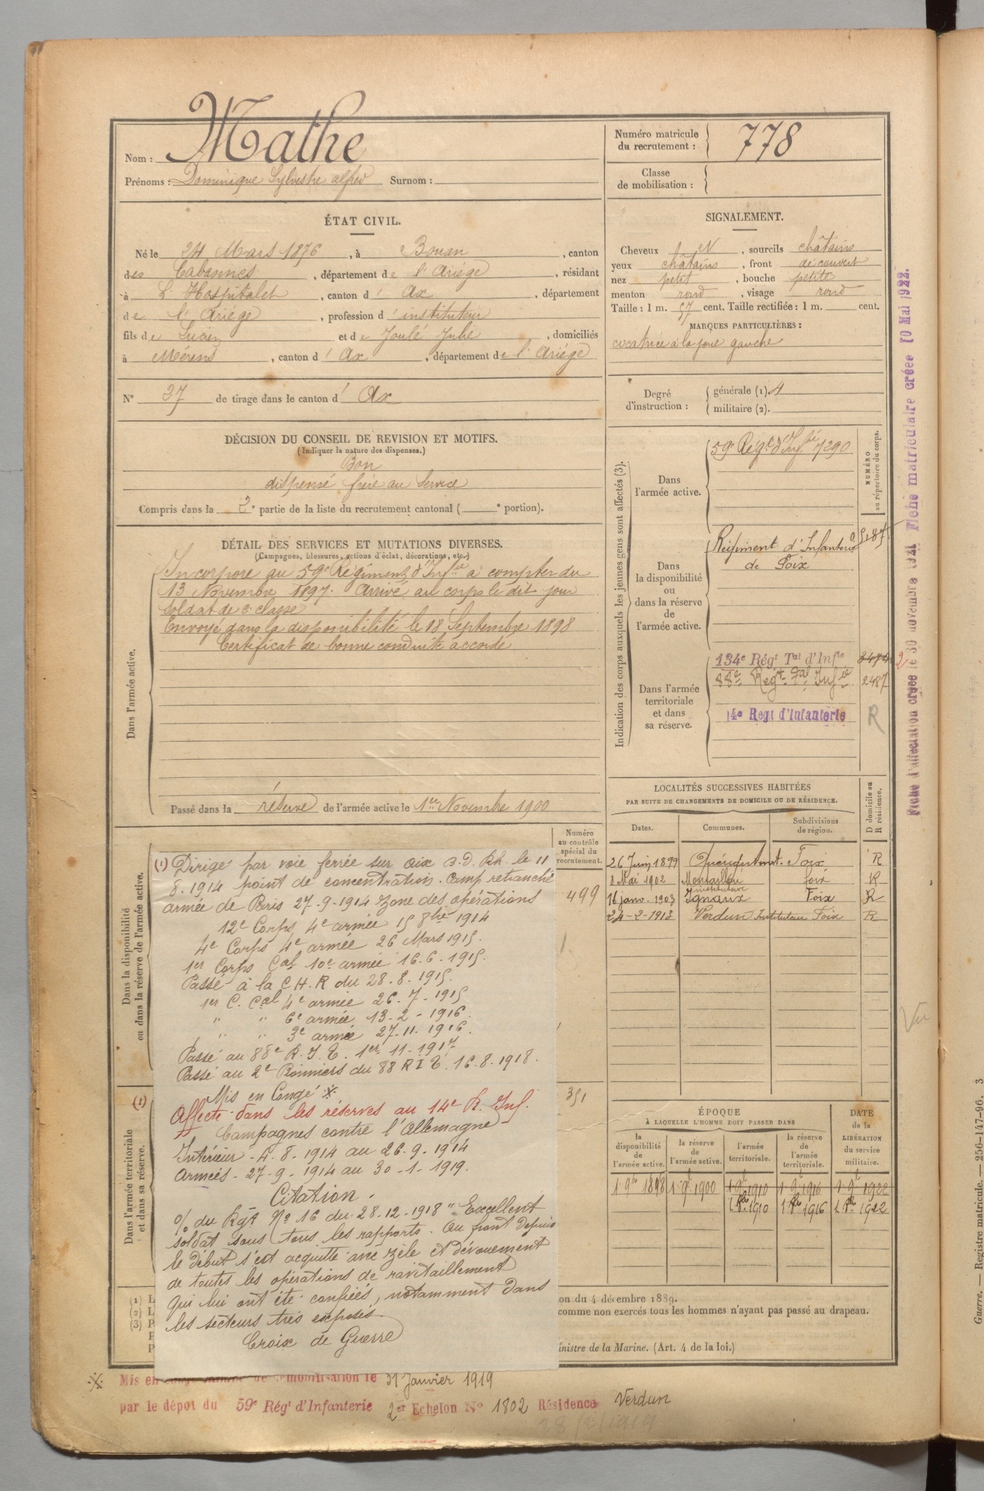 Nom : Mathe
Prénoms : Dominique Sylvestre alfred Surnom :
Numéro matricule du recrutement : 778
Classe de mobilisation :
ÉTAT CIVIL.
Né le 24 Mars 1876, à Bouan, canton
des Cabannes, département de l'Ariège, résidant
à L'Hospitalet, canton d'Ax, département
de l'Ariège, profession d'instituteur
fils de et de Joulé Julie, domiciliés
à Mérens, canton d'Ax, département de l'Ariège
N° 37 de tirage dans le canton d'Ax
SIGNALEMENT.
Cheveux N, sourcils châtains
yeux châtains, front découvert
nez petit, bouche petite
menton rond, visage rond
Taille : 1 m. 67 cent. Taille rectifiée : 1 m. cent.
MARQUES PARTICULIÈRES :
cicatrice à la joue gauche
Degré d'instruction : générale (1). 4
militaire (2).
DÉCISION DU CONSEIL DE REVISION ET MOTIFS.
(Indiquer la nature des dispenses.)
Bon
dispensé frère au service
Compris dans la 2e partie de la liste du recrutement cantonal ( e portion).
DÉTAIL DES SERVICES ET MUTATIONS DIVERSES.
(Campagnes, blessures, actions d'éclat, décorations, etc.)
Dans l'armée active.
Incorporé au 59e Régiment d'Infie à compter du
13 Novembre 1897. Arrivé au corps le dit jour
soldat de 2e classe
Envoyé dans la disponibilité le 18 Septembre 1898
Certificat de bonne conduite accordé
Passé dans la réserve de l'armée active le 1er Novembre 1900
Indication des corps auxquels les jeunes gens sont affectés (3).
NUMÉRO au répertoire du corps.
Dans l'armée active.
59e Régt d'Infie 7290
Dans la disponibilité ou dans la réserve de l'armée active.
Régiment d'Infanterie
de Foix
Dans l'armée territoriale et dans sa réserve.
134e Régt Tal d'Infie
88e Régt Tal Infie 2487
14e Regt d'Infanterie R
LOCALITÉS SUCCESSIVES HABITÉES
PAR SUITE DE CHANGEMENTS DE DOMICILE OU DE RÉSIDENCE.
Dates. Communes. Subdivisions de région. D domicile ou R résidence.
26 Juin 1899 Foix R
2 Mai 1902 Montaillou Foix R
16 janv. 1903 Ignaux instituteur Foix R
24-2-1913 Verdun Instituteur Foix R
Vu
ÉPOQUE
À LAQUELLE L'HOMME DOIT PASSER DANS
DATE de la LIBÉRATION du service militaire.
la disponibilité de l'armée active. la réserve de l'armée active. l'armée territoriale. la réserve de l'armée territoriale.
1 9bre 1898 1 9bre 1900 1 9bre 1910 1 9bre 1916 1 9bre 1922
1 8bre 1910 1 8bre 1916 1 8bre 1922
Numéro au contrôle spécial du recrutement.
499
351
Dans la disponibilité ou dans la réserve de l'armée active.
Dans l'armée territoriale et dans sa réserve.
(1)
(1) Dirigé par voie ferrée sur Aix B.D. Rh. le 11
8.1914 point de concentration. Camp retranché
armée de Paris 27-9-1914 zone des opérations
12e Corps 4e armée 15 8bre 1914
4e Corps 4e armée 26 Mars 1915.
1er Corps Cal 10e armée 16.6.1915.
Passé à la C.H.R du 28.8.1915.
1er C. Cal 4e armée 26-7-1915
" " 6e armée 13-2-1916
" " 3e armée 27-11.1916.
Passé au 88e R.I.T. 1er 11-1917
Passé au 2e Pionniers du 88 R I T. 16-8.1918.
Mis en Congé ※.
Affecté dans les réserves au 14e R. Inf.
Campagnes contre l'Allemagne
Intérieur - 4.8.1914 au 26-9.1914
Armées - 27-9-1914 au 30-1-1919.
Citation.
% du Rgt No 16 du 28-12-1918 "Excellent
soldat sous tous les rapports. Au front depuis
le début s'est acquitté avec zèle et dévouement
de toutes les opérations de ravitaillement
qui lui ont été confiées, notamment dans
les secteurs très exposés
Croix de Guerre
on du 4 décembre 1889.
comme non exercés tous les hommes n'ayant pas passé au drapeau.
inistre de la Marine. (Art. 4 de la loi.)
※ Mis en démobilisation le 31 Janvier 1919
par le dépot du 59e Régt d'Infanterie 2er Echelon No 1802 Résidence Verdun
Fiche d'affectation créée le 30 novembre 1921 Fiche matriculaire créée 10 Mai 1922.
Guerre. — Registre matricule. — 250-147-96. 3